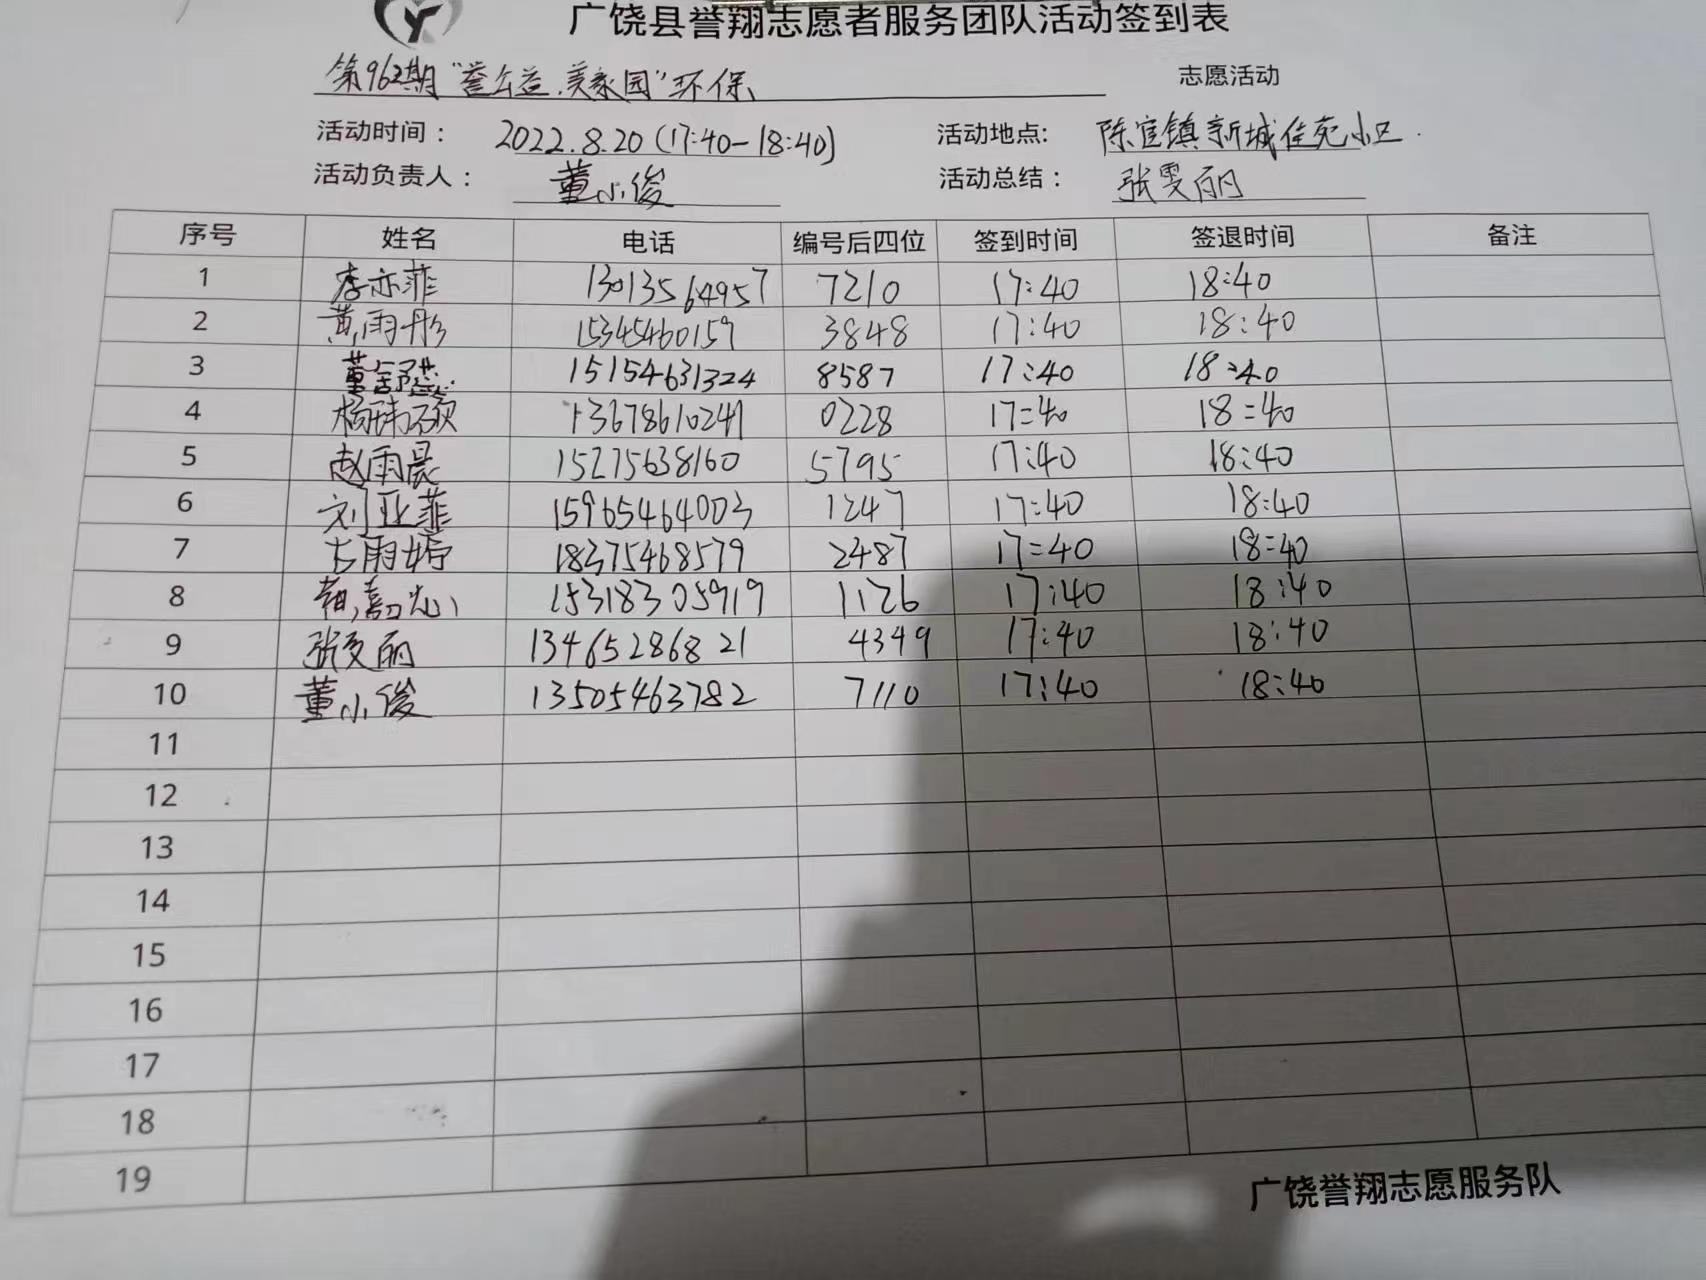 广饶县誉翔志愿者服务团队活动签到表
第962期"誉公益.美家园"环保 志愿活动
活动时间： 2022.8.20(17:40-18:40) 活动地点: 陈官镇新城佳苑小区.
活动负责人： 董小俊 活动总结： 张雯丽
序号 姓名 电话 编号后四位 签到时间 签退时间 备注
1 李亦菲 13013564957 7210 17:40 18:40
2 黄雨彤 15345460159 3848 17:40 18:40
3 董 15154631324 8587 17:40 18:40
4 杨 13678610241 0228 17:40 18:40
5 赵雨晨 15275638160 5795 17:40 18:40
6 刘亚菲 15965464003 1247 17:40 18:40
7 雨婷 18375468579 2487 17:40 18:40
8 嘉 15318305919 1126 17:40 18:40
9 张雯丽 13465286821 4349 17:40 18:40
10 董小俊 13505463782 7110 17:40 18:40
11
12
13
14
15
16
17
18
19
广饶誉翔志愿服务队